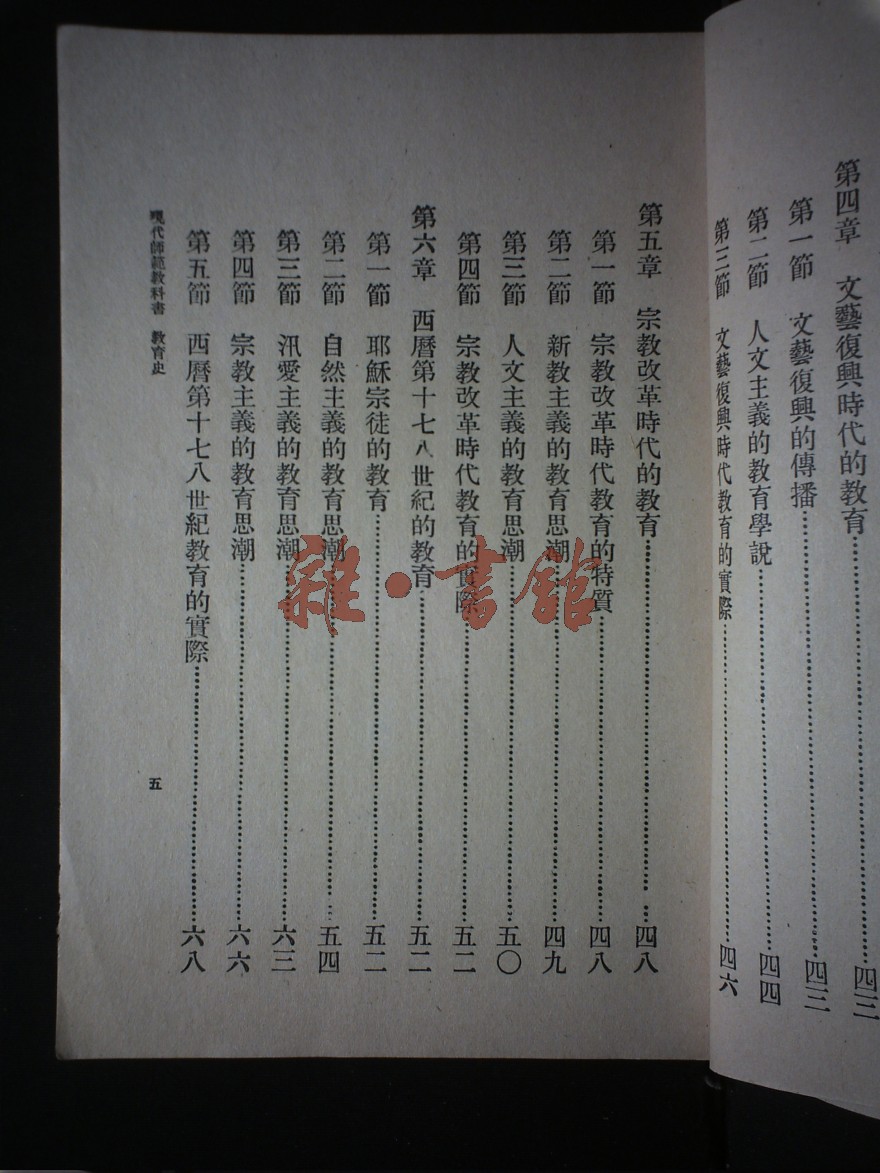 第四章　文藝復興時代的教育……四三
第一節　文藝復興的傳播……四三
第二節　人文主義的教育學說……四四
第三節　文藝復興時代教育的實際……四六
第五章　宗教改革時代的教育……四八
第一節　宗教改革時代教育的特質……四八
第二節　新教主義的教育思潮……四九
第三節　人文主義的教育思潮……五〇
第四節　宗教改革時代教育的實際……五二
第六章　西曆第十七八世紀的教育……五二
第一節　耶穌宗徒的教育……五二
第二節　自然主義的教育思潮……五四
第三節　汎愛主義的教育思潮……六三
第四節　宗教主義的教育思潮……六六
第五節　西曆第十七八世紀教育的實際……六八
現代師範教科書　教育史
五
雜·書館